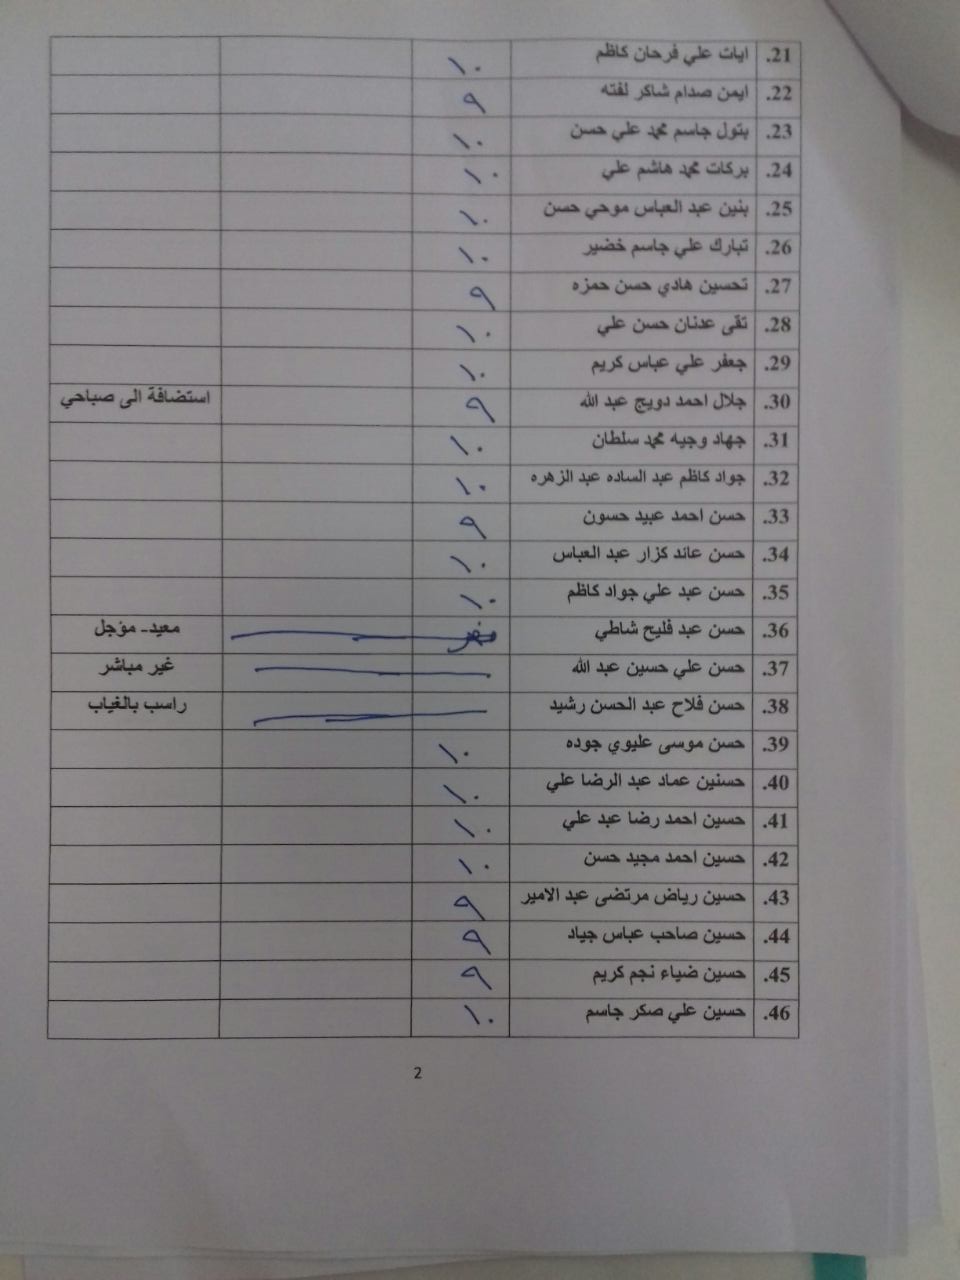 21. ايات علي فرحان كاظم ١٠
22. ايمن صدام شاكر لفته ٩
23. بتول جاسم محمد علي حسن ١٠
24. بركات محمد هاشم علي ١٠
25. بنين عبد العباس موحي حسن ١٠
26. تبارك علي جاسم خضير ١٠
27. تحسين هادي حسن حمزه ٩
28. تقى عدنان حسن علي ١٠
29. جعفر علي عباس كريم ١٠
30. جلال احمد دويج عبد الله ٩ استضافة الى صباحي
31. جهاد وجيه محمد سلطان ١٠
32. جواد كاظم عبد الساده عبد الزهره ١٠
33. حسن احمد عبيد حسون ٩
34. حسن عائد كزار عبد العباس ١٠
35. حسن عبد علي جواد كاظم ١٠
36. حسن عبد فليح شاطي معيد- مؤجل
37. حسن علي حسين عبد الله غير مباشر
38. حسن فلاح عبد الحسن رشيد راسب بالغياب
39. حسن موسى عليوي جوده ١٠
40. حسنين عماد عبد الرضا علي ١٠
41. حسين احمد رضا عبد علي ١٠
42. حسين احمد مجيد حسن ١٠
43. حسين رياض مرتضى عبد الامير ٩
44. حسين صاحب عباس جياد ٩
45. حسين ضياء نجم كريم ٩
46. حسين علي صكر جاسم ١٠
2